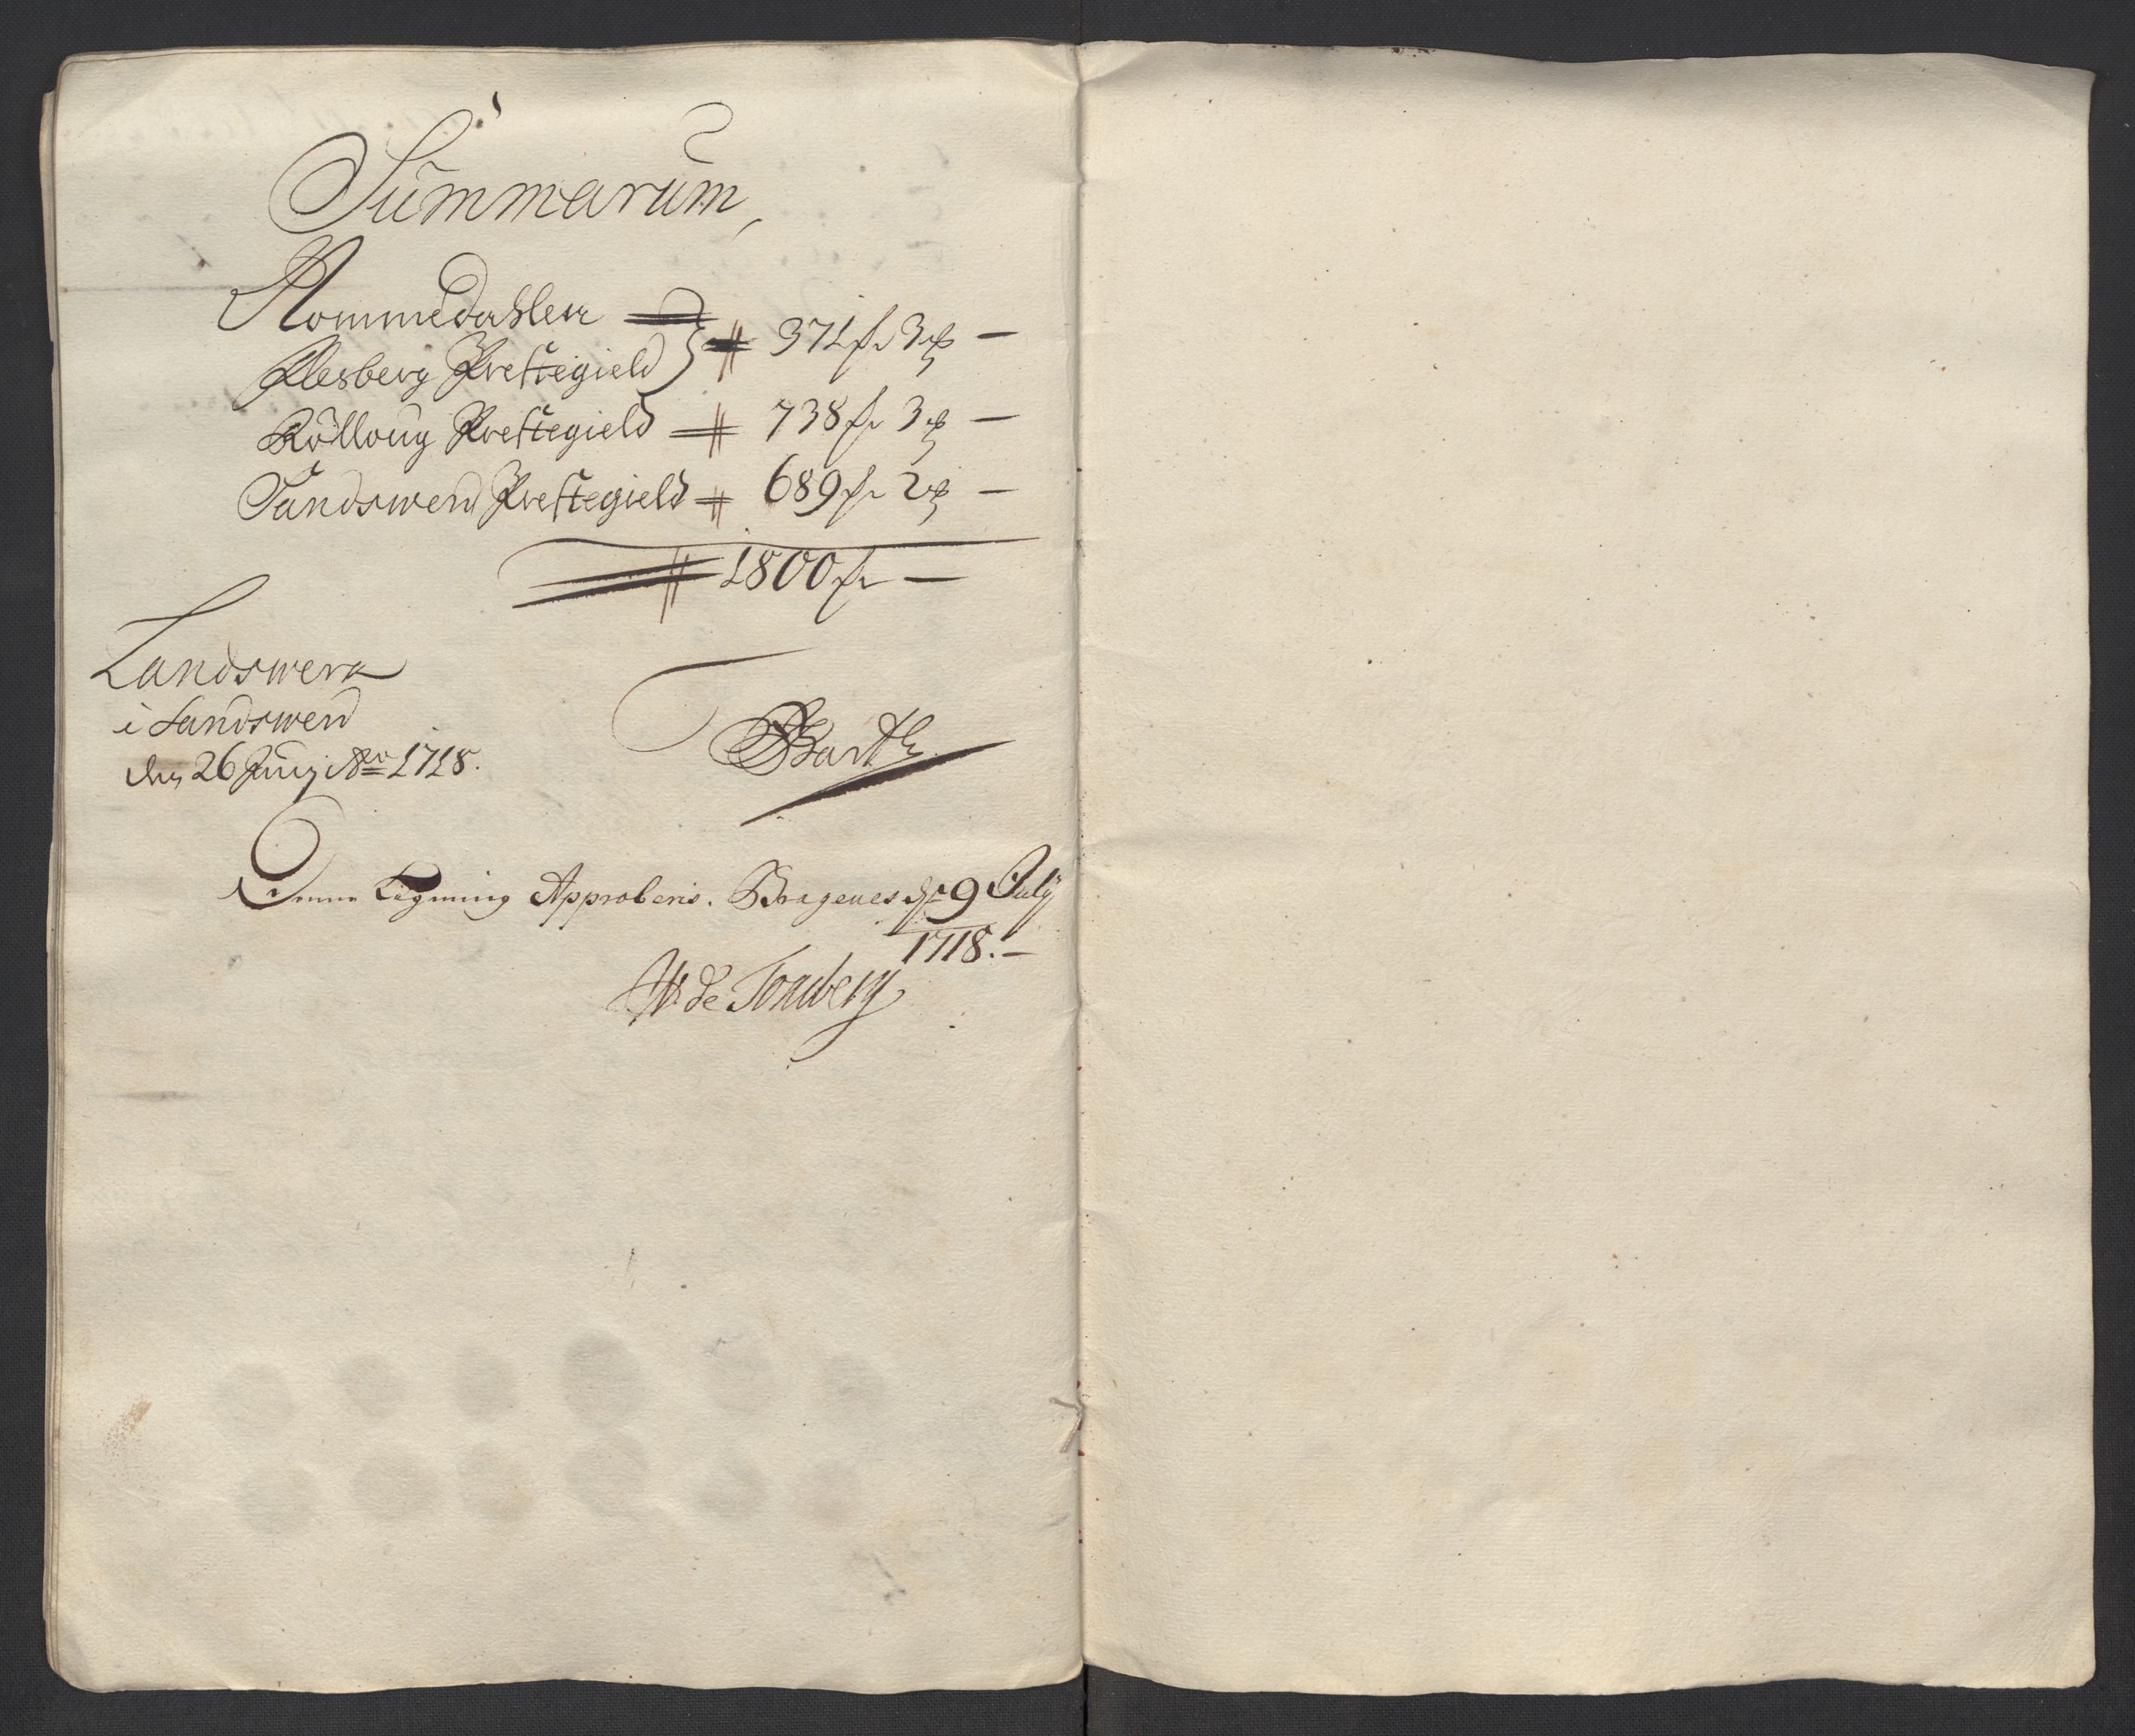 Summarum,
Nommedahlen
Flesberg Prestegield } 371 fr 3 ß —
Rolloug Prestegield 738 fr 3 ß —
Sandswerd Prestegield 689 fr 2 ß —
1800 fr —
Landswerk
i Sandswerd
den 26 Junj Ao 1718.
Barth
Denne Ligning Approberis. Bragenes d 9 Julij
1718. —
W. de Tonsberg